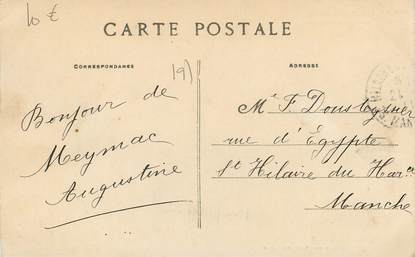 10 €
CARTE POSTALE
CORRESPONDANCE
19)
ADRESSE
Bonjour de
Meymac
Augustine
Mr F.
rue d'Egypte
St Hilaire du Harct
Manche